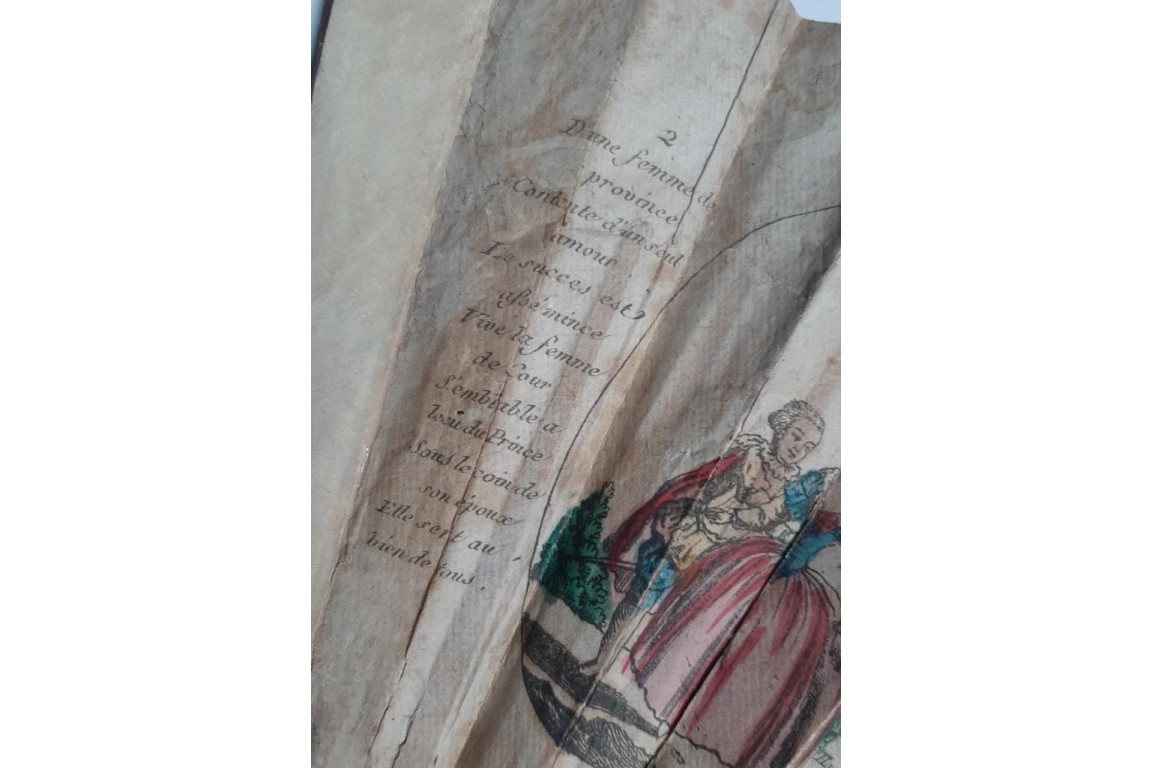 2
D'une femme de
province
Contente d'un seul
amour
Le succes est
assé mince
Vive la femme
de Cour
S'emblable a
lecu du Prince
Sous le coin de
son époux
Elle sert au
bien de tous.